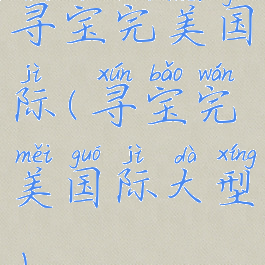 寻宝完美国
jì xún bǎo wán
际(寻宝完
měi guó jì dà xíng
美国际大型
)